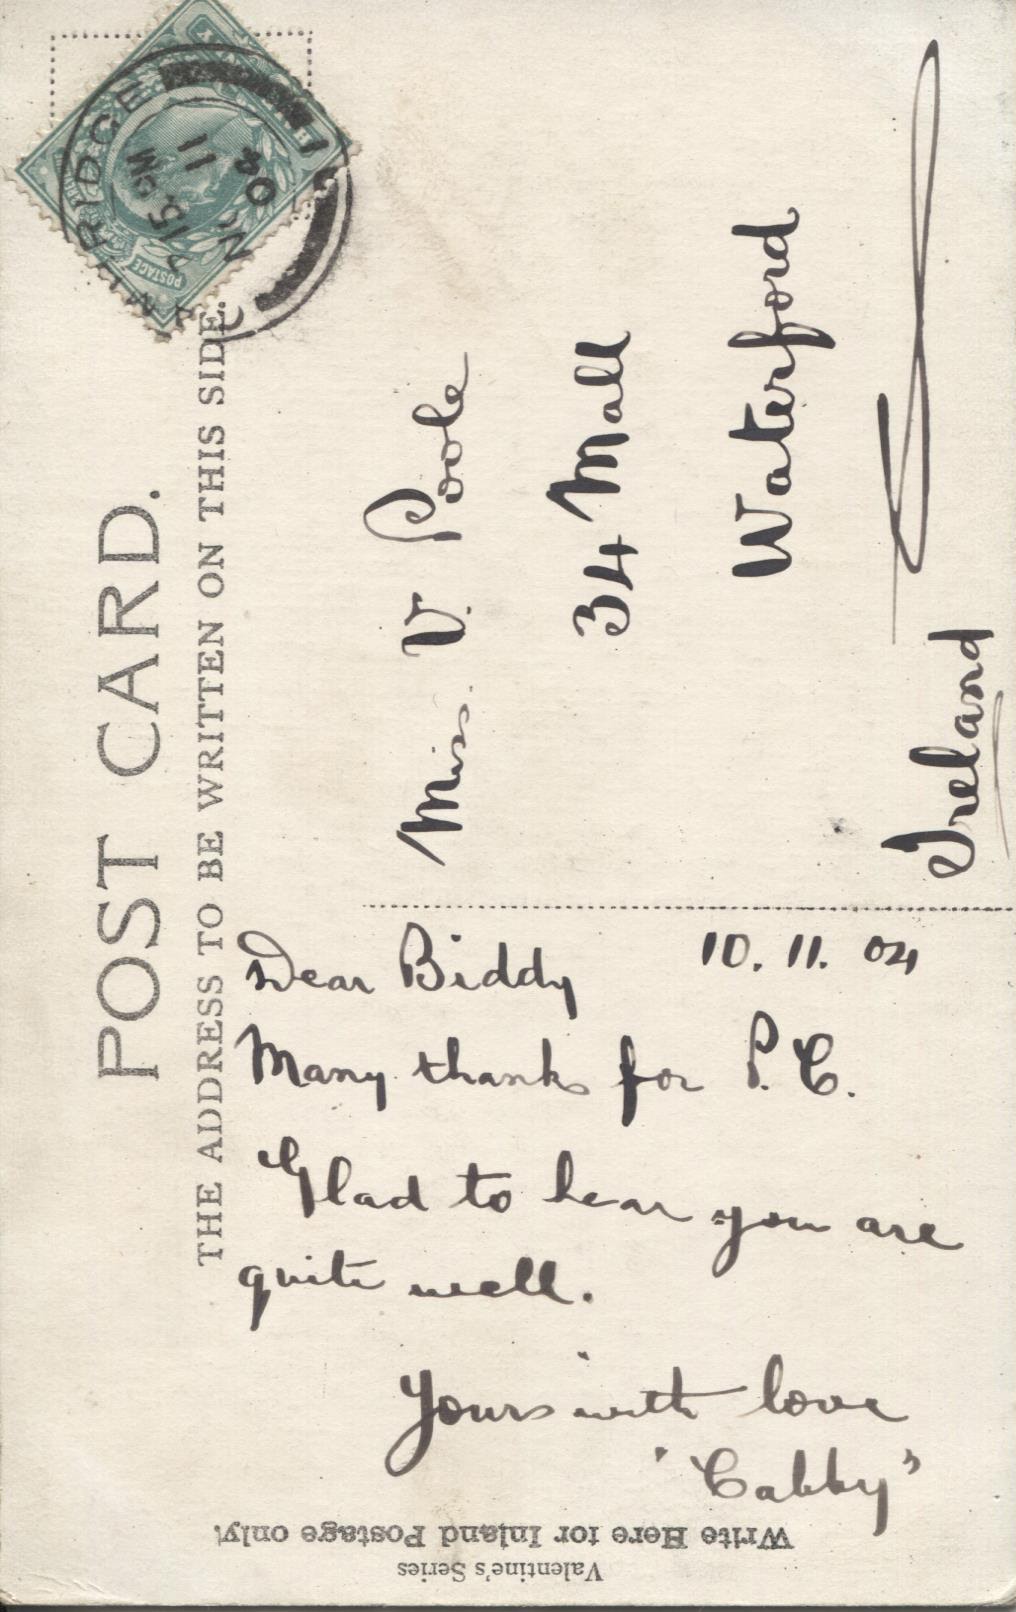 POST CARD.
THE ADDRESS TO BE WRITTEN ON THIS SIDE.
POSTAGE
NO 11
04
Miss. V. Poole
34 Mall
Waterford
Ireland
10. 11. 04
Dear Biddy
Many thanks for P.C.
Glad to hear you are
quite well.
Yours with love
"Cabby"
Write Here for Inland Postage only!
Valentine's Series